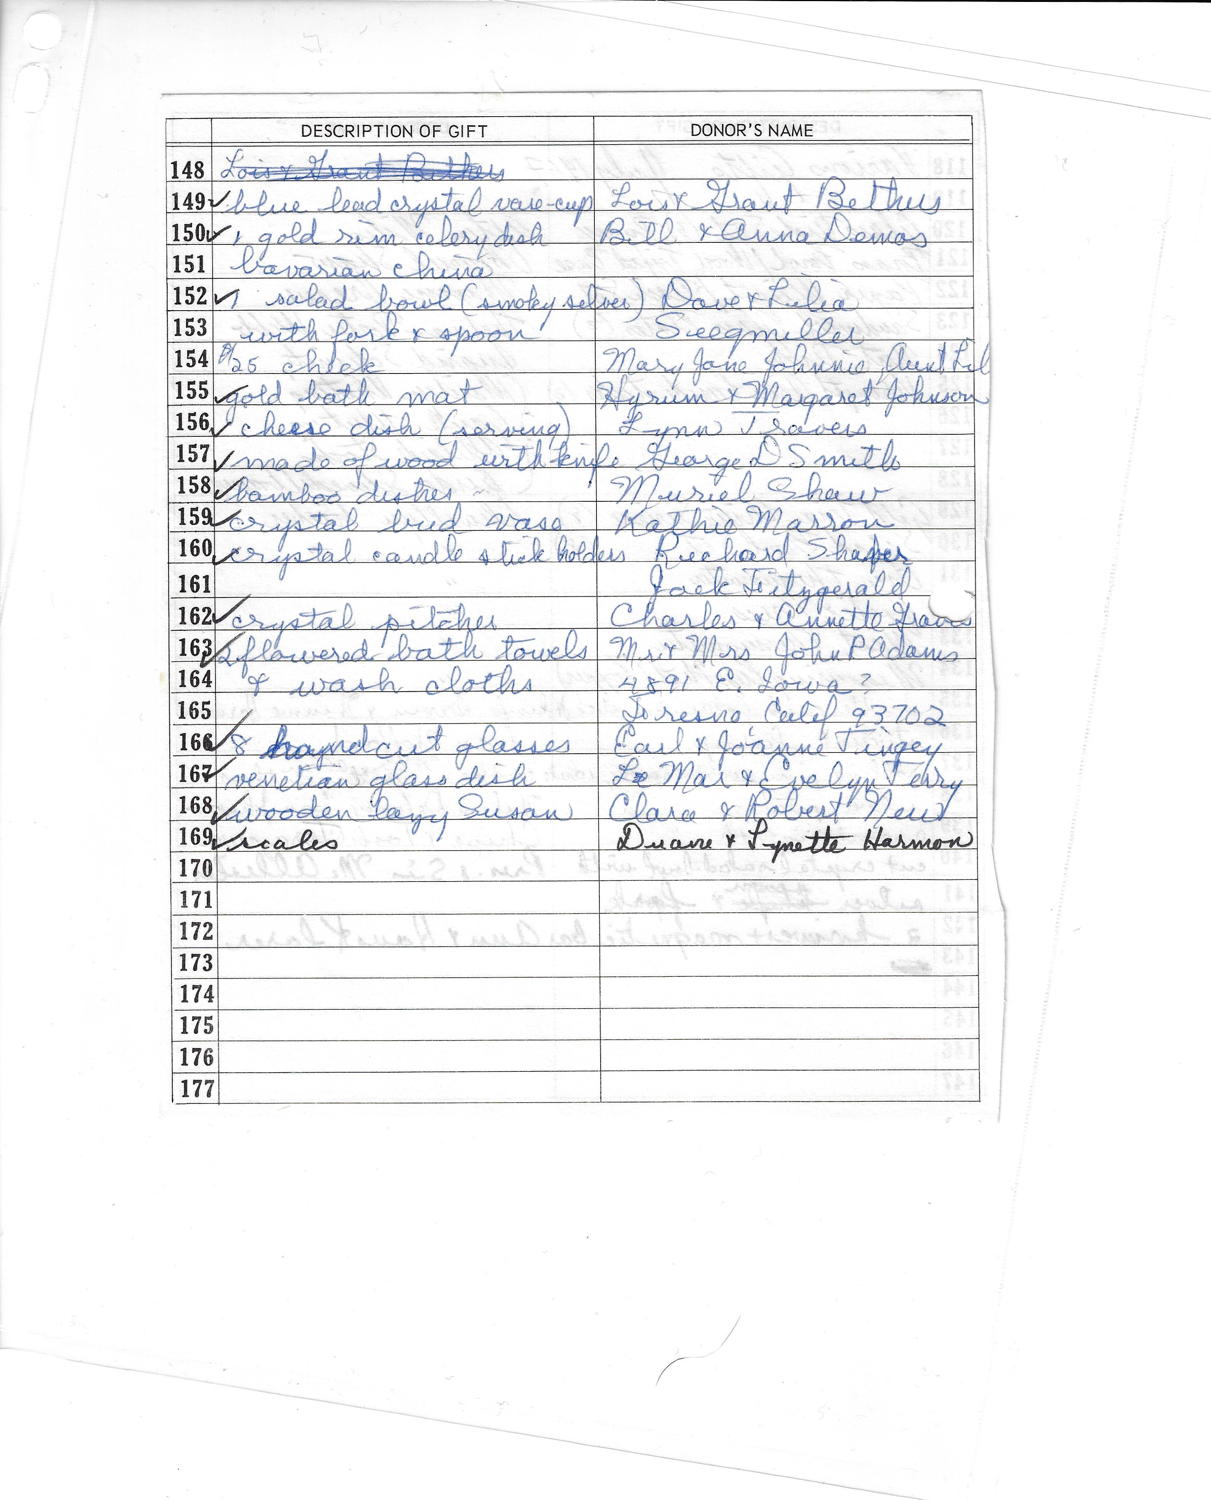 DESCRIPTION OF GIFT DONOR'S NAME
148 Lois & Grant Bethers
149 ✓ blue lead crystal vase-cup Lois & Grant Bethers
150 ✓ 1 gold rim celery dish Bill & Anna Demos
151 bavarian china
152 ✓ 1 salad bowl (smoky silver) Dave & Lilia
153 with fork & spoon Seegmiller
154 $25 check Mary Jane Johnnie, Aunt Lil
155 ✓ gold bath mat Hyrum & Margaret Johnson
156 ✓ cheese dish (serving) Lynn Travers
157 ✓ made of wood with knife George D Smith
158 ✓ bamboo dishes Muriel Shaw
159 ✓ crystal bud vase Kathie Marron
160 ✓ crystal candle stick holders Richard Shafer
161 Jack Fitzgerald
162 ✓ crystal pitcher Charles & Annette
163 ✓ 2 flowered bath towels Mr & Mrs John P Adams
164 & wash cloths 4891 E. Iowa ?
165 Fresno, Calif 93702
166 ✓ 8 hand cut glasses Earl & Joanne Tingey
167 ✓ venetian glass dish Le Mar & Evelyn Terry
168 ✓ wooden lazy Susan Clara & Robert New
169 ✓ scales Duane & Lynette Harmon
170
171
172
173
174
175
176
177